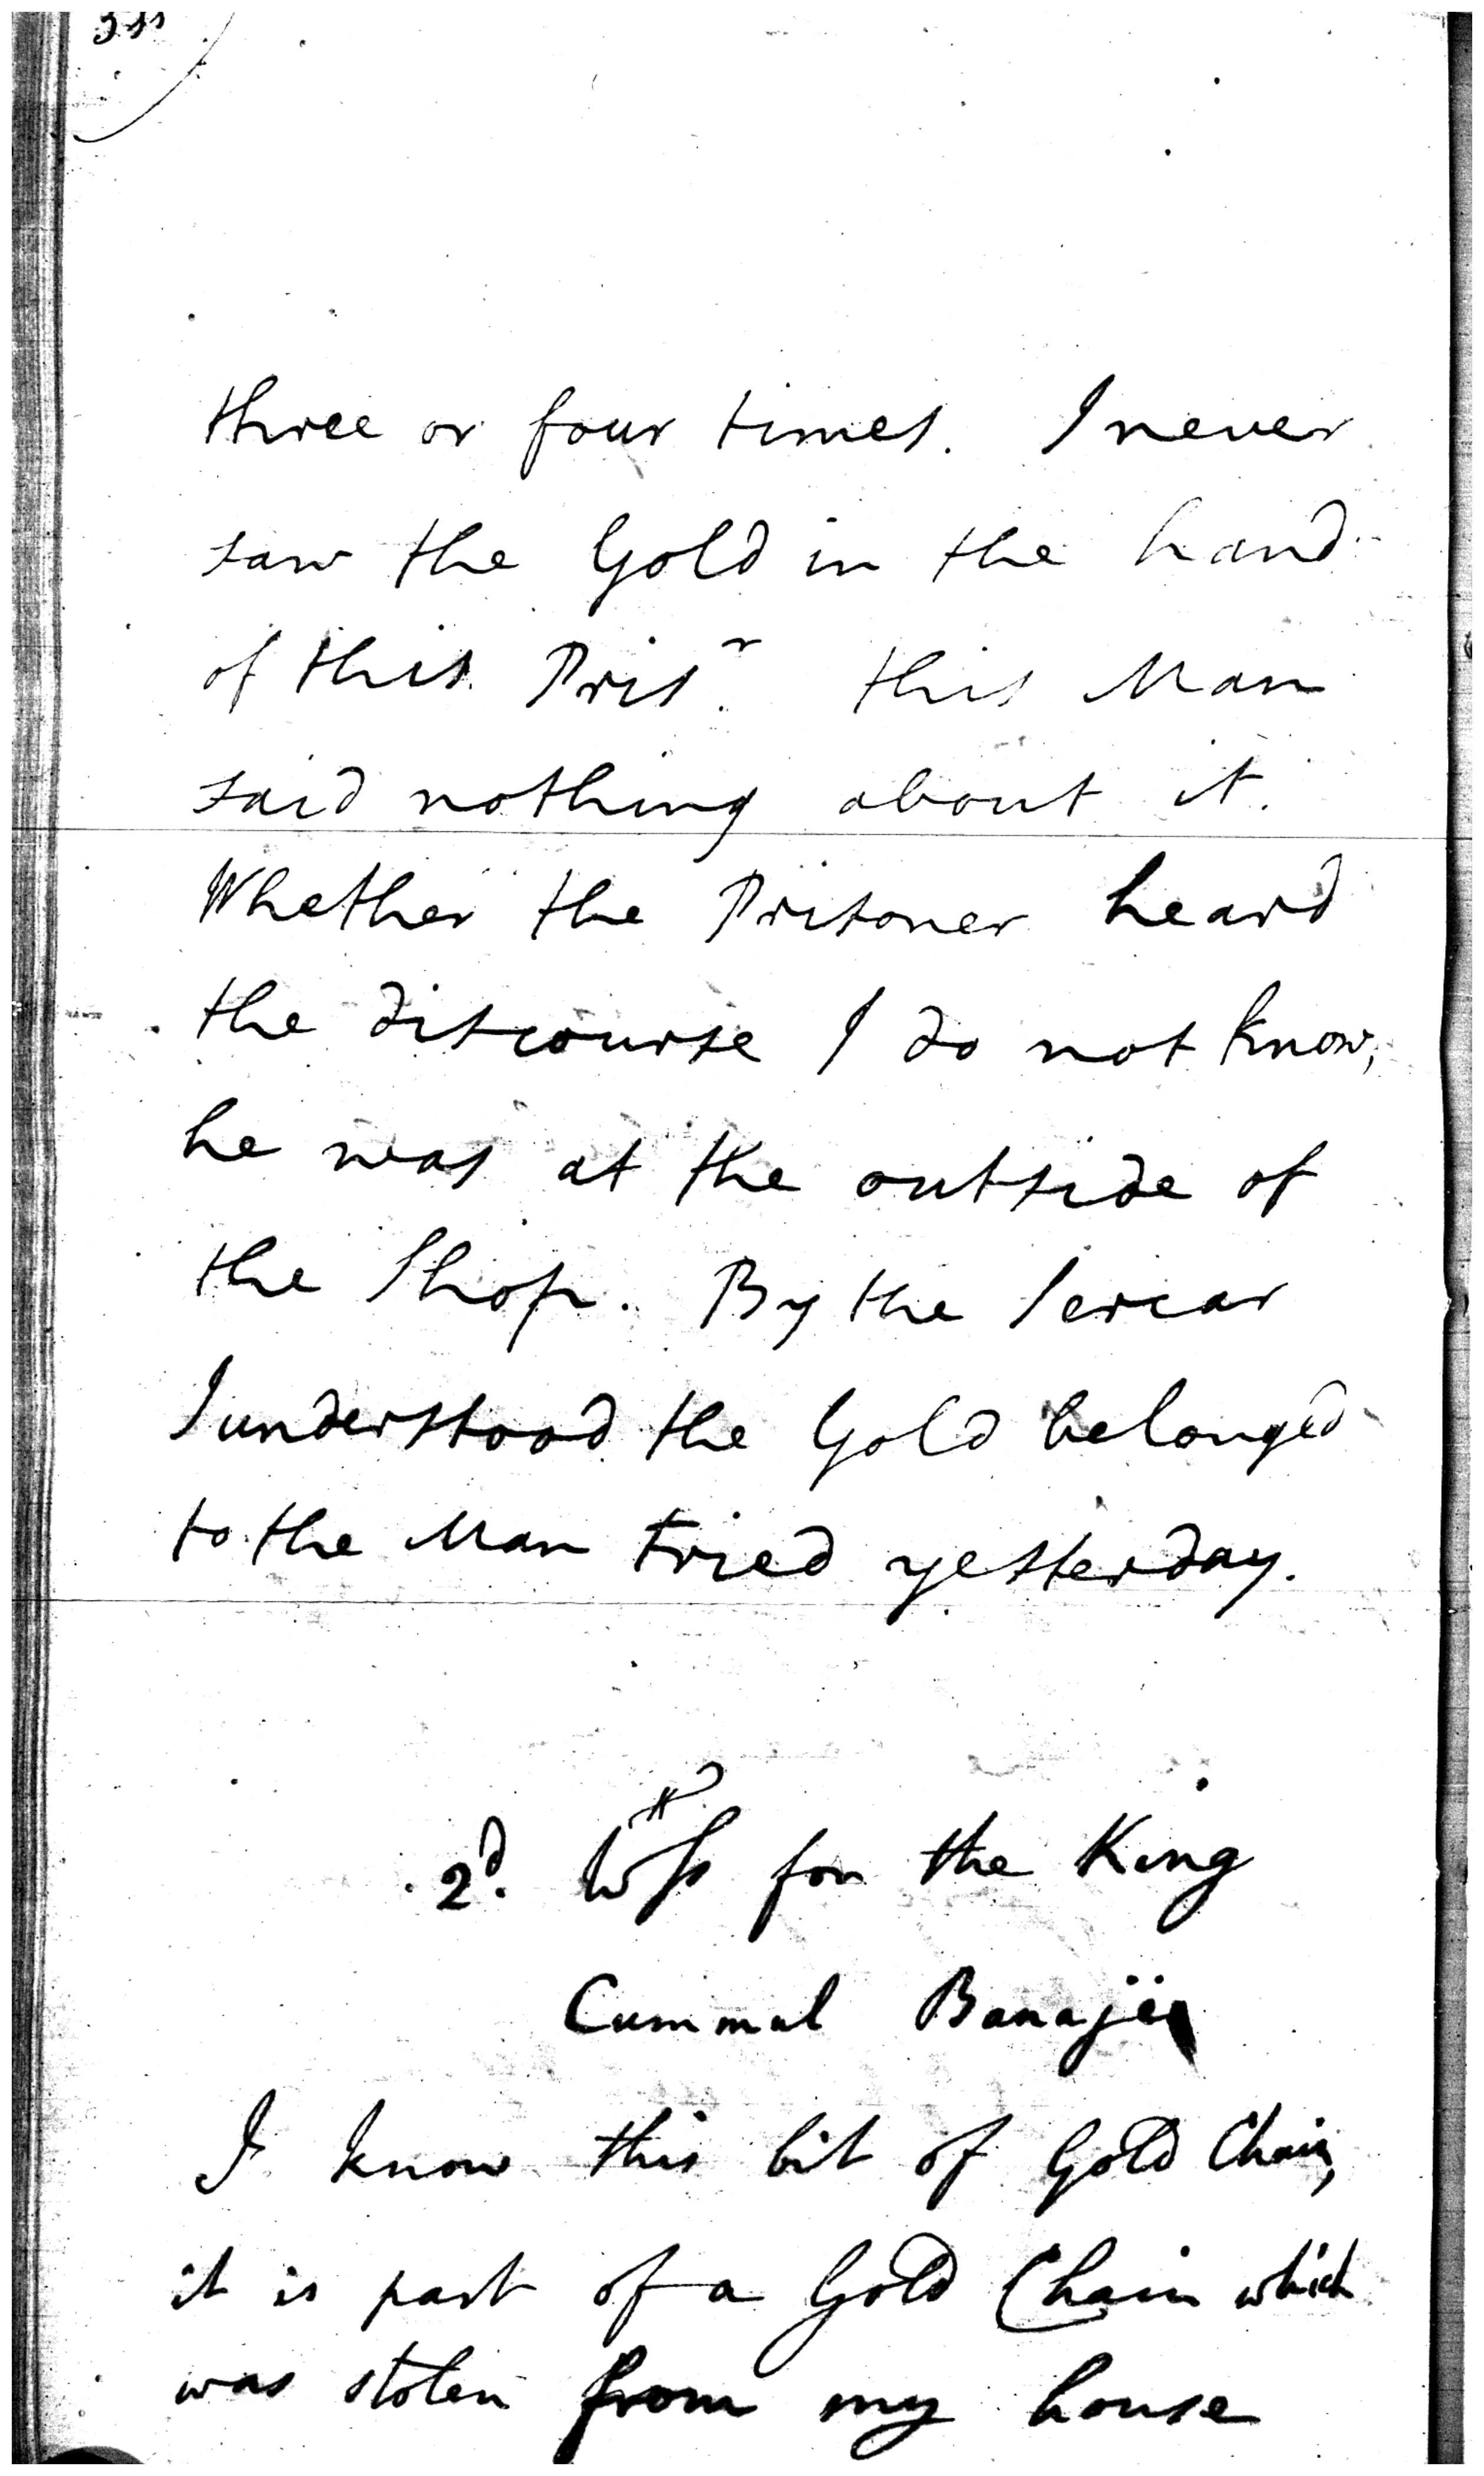 three or four times. I never
saw the Gold in the hand
of this Prisr. this Man
said nothing about it.
Whether the Prisoner heard
the discourse I do not know,
he was at the outside of
the Shop. By the Sercar
I understood the Gold belonged
to the Man tried yesterday.
2d. Wss for the King
Cummul Banajee
I know this bit of Gold Chain,
it is part of a Gold Chain which
was stolen from my house